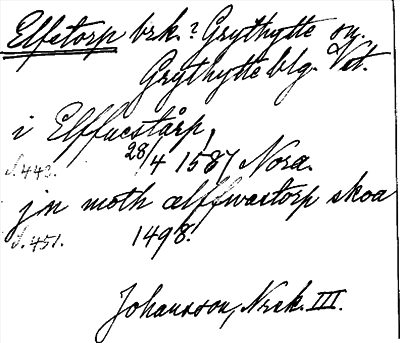 Elfetorp brk.? Grythytte sn.
Grythytte blg. Vst.
i Elffuestårp,
s. 443. 28/4 1587 Nora.
jn moth ælffwastorp skoa
s. 451. 1498.
Johansson, Nrak. III.